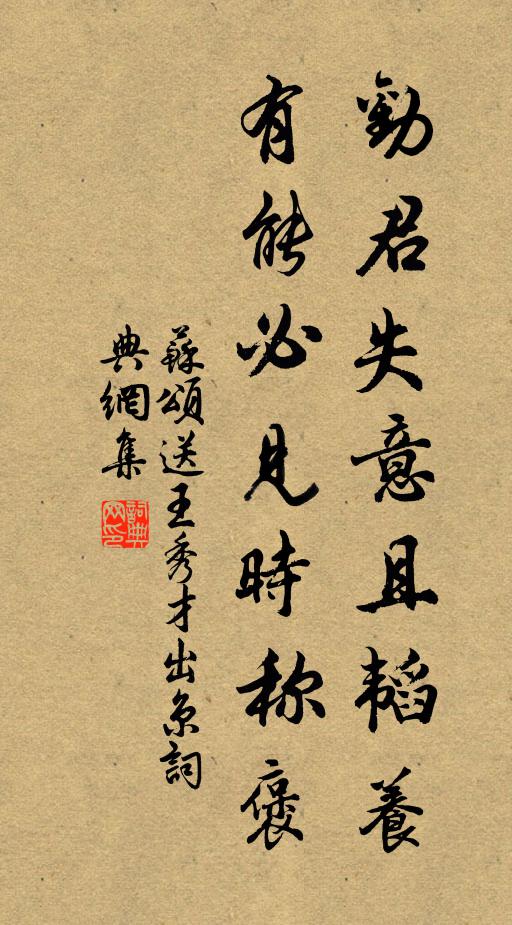 勸君失意且韜養
有能必見時称褒
蘇頌送王秀才出京詞
典網集
詞典
网印